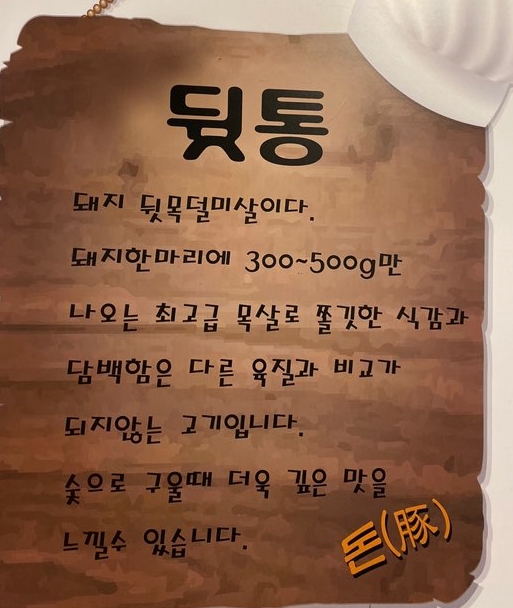 뒷통
돼지 뒷목덜미살이다.
돼지한마리에 300~500g만
나오는 최고급 목살로 쫄깃한 식감과
담백함은 다른 육질과 비교가
되지않는 고기입니다.
숯으로 구울때 더욱 깊은 맛을
느낄수 있습니다.
돈(豚)